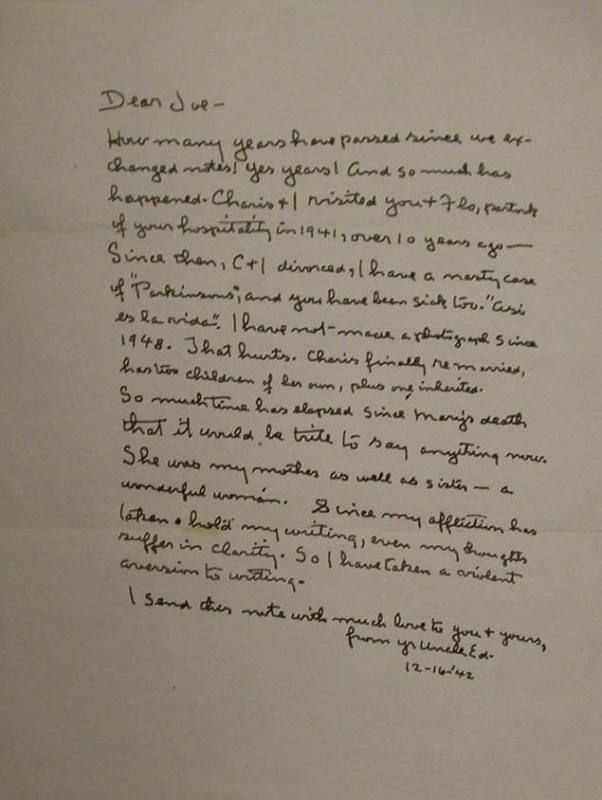 Dear Joe-
How many years have passed since we ex-
changed notes! Yes years! And so much has
happened. Charis + I visited you + Flo, partook
of your hospitality in 1941, over 10 years ago —
Since then, C + I divorced, I have a nasty case
of "Parkinsons", and you have been sick too. "Asi
es la vida". I have not made a photograph since
1948. That hurts. Charis finally remarried,
has two children of her own, plus one inherited.
So much time has elapsed since Mary's death
that it would be trite to say anything now.
She was my mother as well as sister — a
wonderful woman. Since my affliction has
taken hold my writing, even my thoughts
suffer in clarity. So I have taken a violent
aversion to writing.
I send this note with much love to you + yours,
from yr Uncle Ed.
12-16-'42